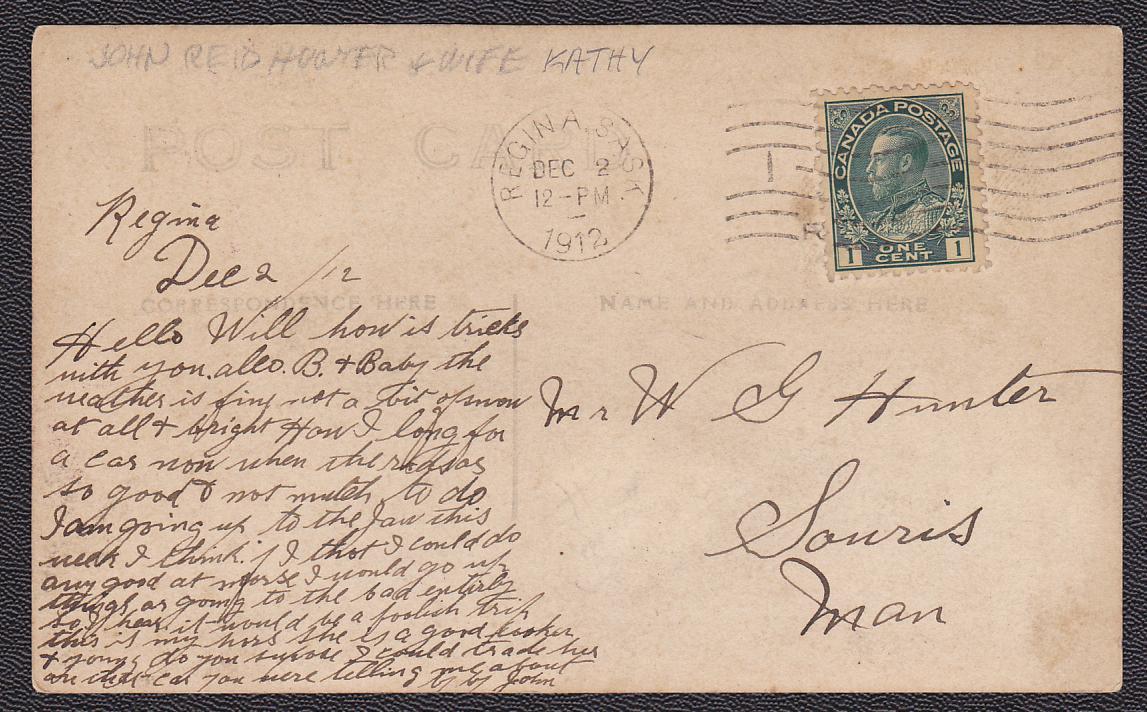 JOHN REID HUNTER & WIFE KATHY
POST CARD
REGINA SASK.
DEC 2
12-PM
1912
1
R
CANADA POSTAGE
1 ONE CENT 1
Regina
Dec 2/12
CORRESPONDENCE HERE
NAME AND ADDRESS HERE
Hello Will how is tricks
with you. also. B. & Baby the
weather is fine not a bit of snow
at all & bright How I long for
a car now when the roads as
so good & not mutch to do
I am going up to the Jaw this
week I think. if I that I could do
any good at morse I would go up
things ar going to the bad entirly
so I hear it would be a foolish trip
this is my hors she is a good looker
& young do you supose I could trade her
on car you were telling me about
by by John
Mr W G Hunter
Souris
Man